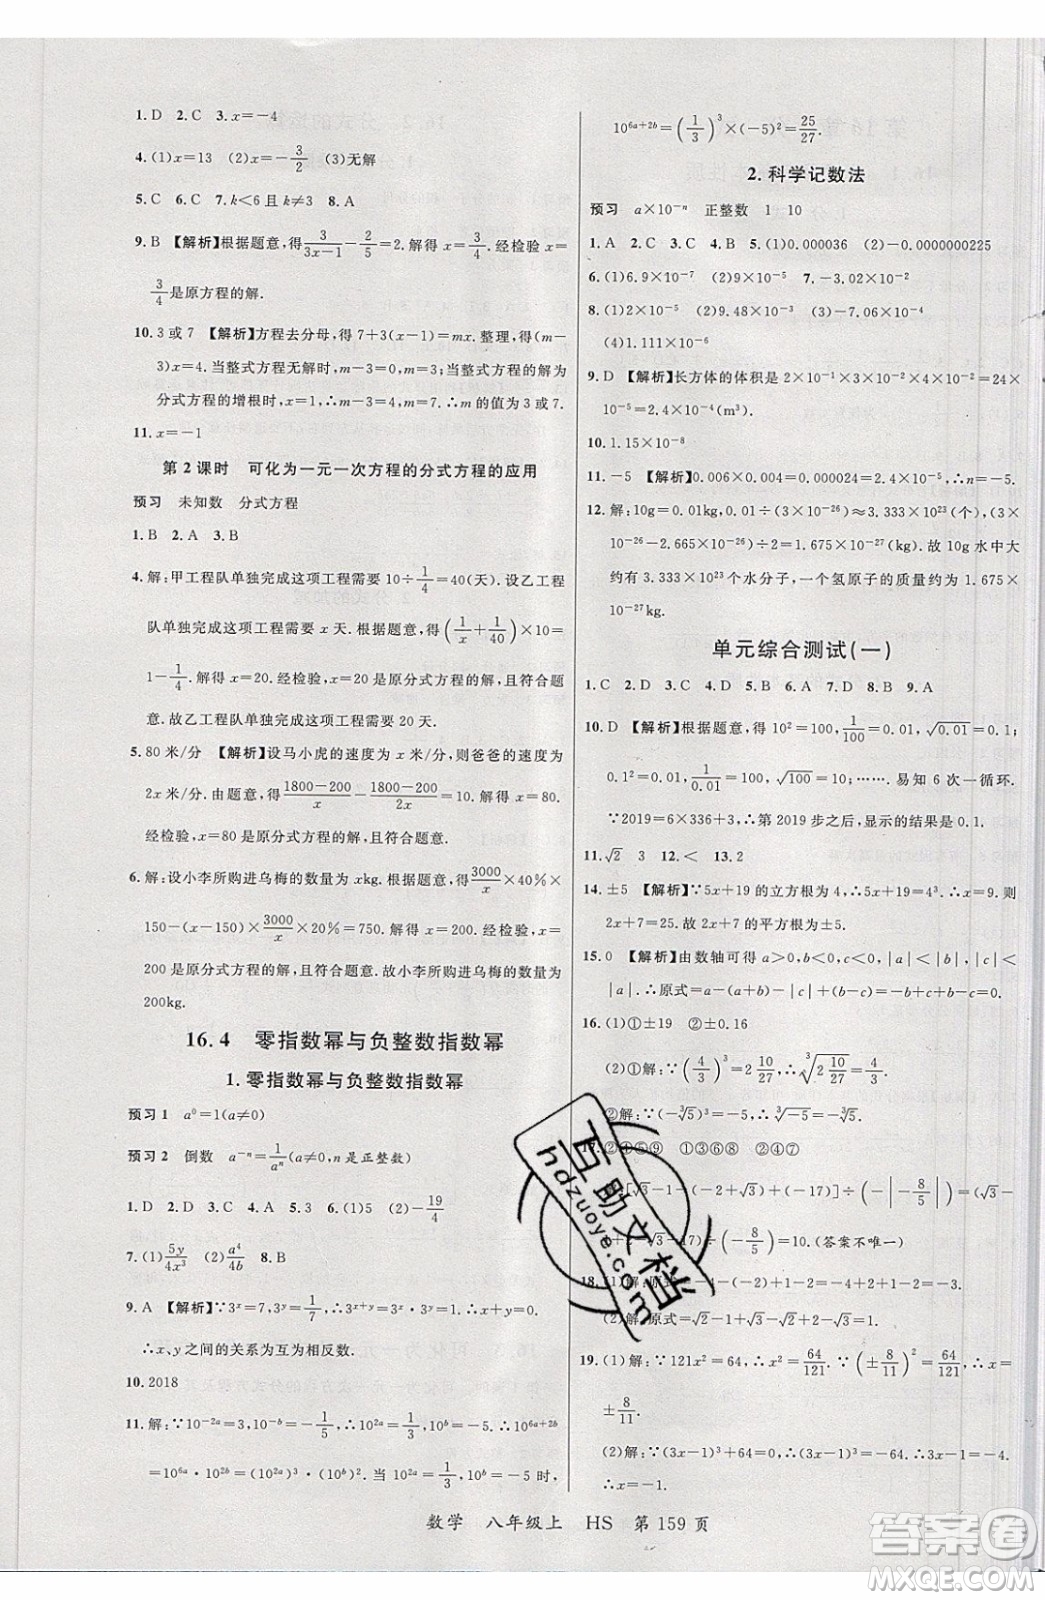 1. D  2. C  3. x=-4
4. (1)x=13  (2)x=-3/2  (3)无解
5. C  6. C  7. k<6且k≠3  8. A
9. B  【解析】根据题意，得3/(3x-1)-2/5=2. 解得 x=3/4. 经检验 x=
3/4是原方程的解.
10. 3或7  【解析】方程去分母，得 7+3(x-1)=mx. 整理，得(m-
3)x=4. 当整式方程无解时，m-3=0，m=3；当整式方程的解为
分式方程的增根时，x=1，∴m-3=4，m=7. ∴m的值为3或7.
11. x=-1
第2课时  可化为一元一次方程的分式方程的应用
预习  未知数  分式方程
1. B  2. A  3. B
4. 解：甲工程队单独完成这项工程需要 10÷1/4=40(天). 设乙工程
队单独完成这项工程需要 x 天. 根据题意，得(1/x+1/40)×10=
1-1/4. 解得 x=20. 经检验，x=20 是原分式方程的解，且符合题
意. 故乙工程队单独完成这项工程需要20天.
5. 80米/分  【解析】设马小虎的速度为 x 米/分，则爸爸的速度是
2x 米/分. 由题意，得(1800-200)/x-(1800-200)/2x=10. 解得 x=80.
经检验，x=80 是原分式方程的解，且符合题意.
6. 解：设小李所购进乌梅的数量为 xkg. 根据题意，得3000/x×40%×
150-(x-150)×3000/x×20%=750. 解得 x=200. 经检验，x=
200 是原分式方程的解，且符合题意. 故小李所购进乌梅的数量为
200kg.
16.4  零指数幂与负整数指数幂
1. 零指数幂与负整数指数幂
预习1  a⁰=1(a≠0)
预习2  倒数  a⁻ⁿ=1/aⁿ(a≠0，n是正整数)
1. D  2. D  3. C  4. A  5. 3  6. (1)5  (2)-19/4
7. (1)5y/4x³  (2)a⁴/4b  8. B
9. A  【解析】∵3ˣ=7，3ʸ=1/7，∴3ˣ⁺ʸ=3ˣ·3ʸ=7×1/7=1=3⁰.
∴x、y之间的关系为互为相反数.
10. 2018
11. 解：∵10⁻²ᵃ=3，10⁻²ᵇ=-1/5，∴10²ᵃ=1/3，10²ᵇ=-5. ∴10⁶ᵃ⁺²ᵇ
=10⁶ᵃ·10²ᵇ=(10²ᵃ)³·(10²ᵇ)². 当 10²ᵃ=1/3，10²ᵇ=-5 时，
10⁶ᵃ⁺²ᵇ=(1/3)³×(-5)²=25/27.
2. 科学记数法
预习  a×10⁻ⁿ  正整数  1  10
1. A  2. C  3. C  4. C  5. (1)0.000036  (2)-0.0000000225
6. (1)6.9×10⁻⁷  (2)9×10⁻⁵  7. -3.02×10⁻²
8. (1)2×10⁻⁵  (2)9×10⁻⁵  (3)-7.06×10⁻⁴
(4)1.118×10⁻⁷
9. D  【解析】长方体的体积是 2×10⁻¹×3×10⁻²×4×10⁻²=24×
10⁻⁵=2.4×10⁻⁴(m³).
10. 1.15×10⁻⁸
11. -5  【解析】0.006×0.004=0.000024=2.4×10⁻⁵，∴n=-5.
12. 解：10g=0.01kg，0.01÷(3×10⁻²⁶)≈3.333×10²³(个)，(3×
10⁻²⁶-2.665×10⁻²⁶)÷2=1.675×10⁻²⁷(kg). 故10g水中大
约有 3.333×10²³个水分子，一个氢原子的质量约为 1.675×
10⁻²⁷kg.
单元综合测试(一)
1. C  2. D  3. C  4. D  5. B  6. A  7. D  8. B  9. A
10. D  【解析】根据题意，得 10²=100，1/100=0.01，√0.01=0.1；
0.1²=0.01，1/0.01=100，√100=10；……. 易知 6 次一循环.
∵2019=6×336+3，∴第2019步之后，显示的结果是0.1.
11. √2  3  12. <  13. 2
14. ±5  【解析】∵5x+19的立方根为4，∴5x+19=4³. ∴x=9. 则
2x+7=25. 故2x+7的平方根为±5.
15. 0  【解析】由数轴可得 a>0，b<0，c<0，|a|<|b|，|c|<
|a|. ∴原式=a-a-b-|c|+|b|+|c|=-b-b+c-c=0.
16. (1)①±19  ②±0.16
(2)①解：∵(4/3)³=2 10/27，∴³√(2 10/27)=4/3.
②解：∵(-³√5)³=-5，∴³√-5=-³√5.
17. ②④⑤⑨  ①③⑥⑧  ②④⑤⑦
18. (1)解：原式=-4-1-(-2)+1-2=-4+2+1-2=-3.
(2)解：原式=√2-1+√3-√2+2-√3=-1+2=1.
19. (1)解：∵121x²=64，∴x²=64/121. ∵(±8/11)²=64/121，∴x=
±8/11.
(2)解：∵(3x-1)³+64=0，∴(3x-1)³=-64. ∴3x-1=-4.
∴x=-1.
数学  八年级上  HS  第159页
互助文档
hdzuoye.com
答案圈
MXQE.COM